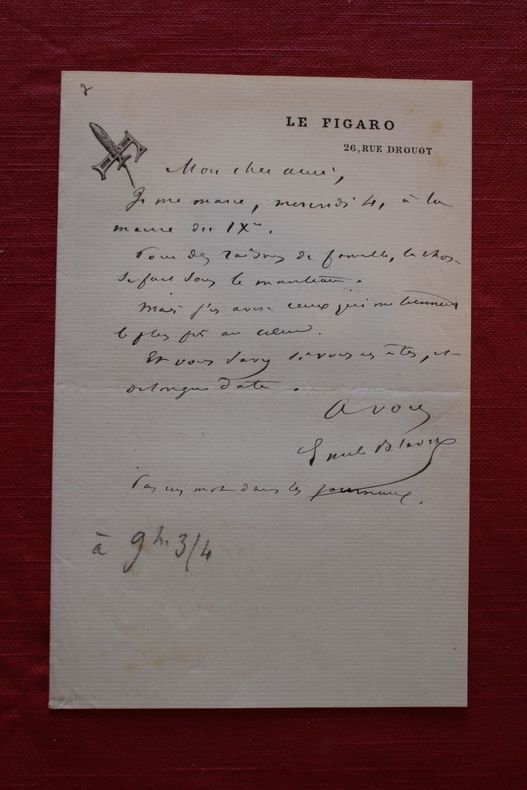 LE FIGARO
26, RUE DROUOT
Mon cher ami,
Je me marie, mercredi 4, à la
mairie du IXe.
Pour des raisons de famille, la chose
se fait sous le manteau.
Mais j'en avise ceux qui me tiennent
le plus près au cœur.
Et vous savez si vous en êtes, et
de longue date.
A vous
Emile Blavet
Pas un mot dans les journaux.
à 9h. 3/4